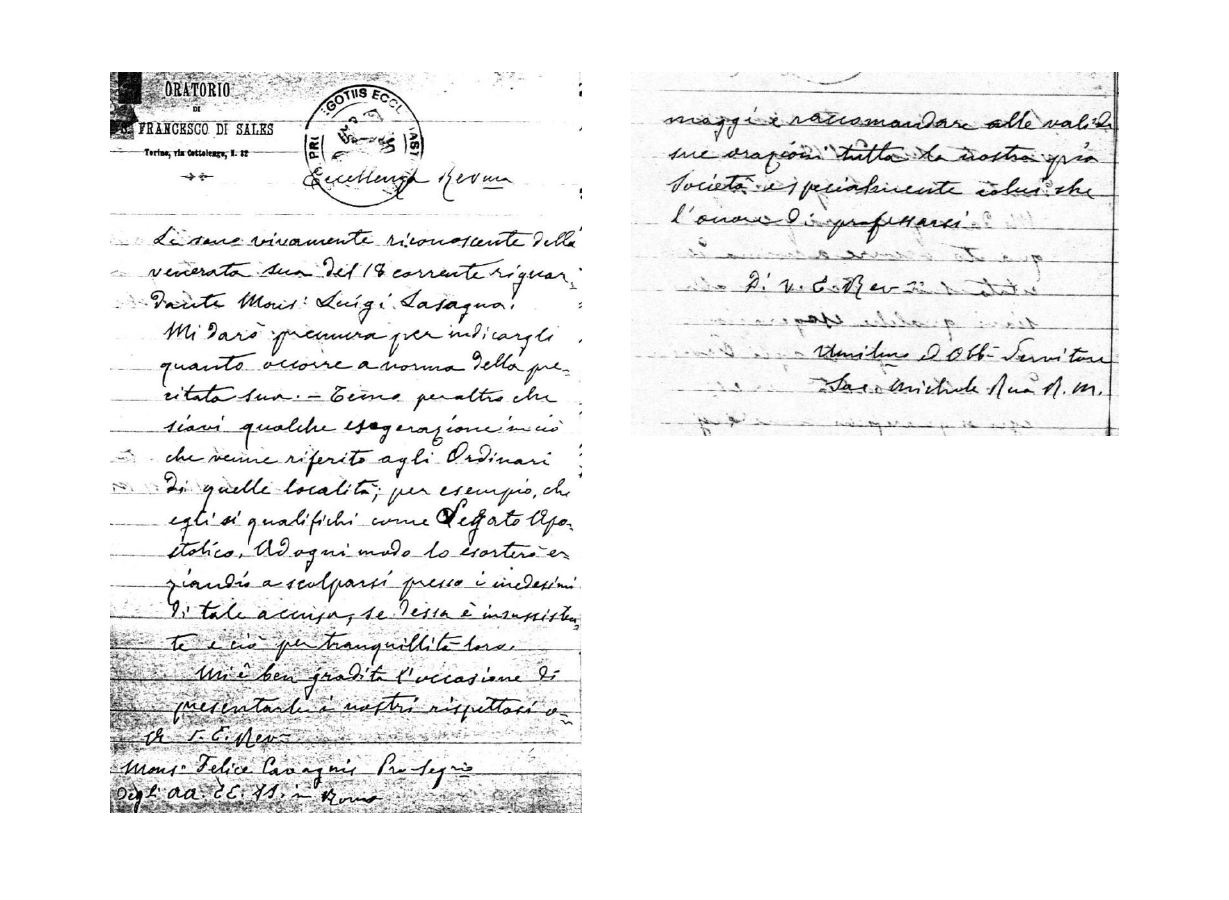 ORATORIO
DI
S. FRANCESCO DI SALES
Torino, via Cottolengo, N. 32
EGOTIIS ECCL IAST PRI
Eccellenza Rev.ma
Le sono vivamente riconoscente della
venerata sua del 18 corrente riguar-
dante Mons: Luigi Lasagna.
Mi darò premura per indicargli
quanto occorre a norma della pre-
citata sua. – Temo peraltro che
siavi qualche esagerazione in ciò
che venne riferito agli Ordinari
di quelle località; per esempio, che
egli si qualifichi come Legato Apo-
stolico. Ad ogni modo lo esorterò e-
ziandio a scolparsi presso i medesimi
di tale accusa, se dessa è insussisten-
te e ciò per tranquillità loro.
Mi è ben gradita l'occasione di
presentarle i nostri rispettosi o-
S. E. Rev.
Mons: Felice Cavagnis Pro-Segrio
degli AA. EE. SS. in Roma
maggi e raccomandare alle valide
sue orazioni tutta la nostra pia
Società e specialmente colui che
l'onore di professarsi
Di V. E. Rev.
Umilmo ed Obb. Servitore
Sac. Michele Rua R. M.